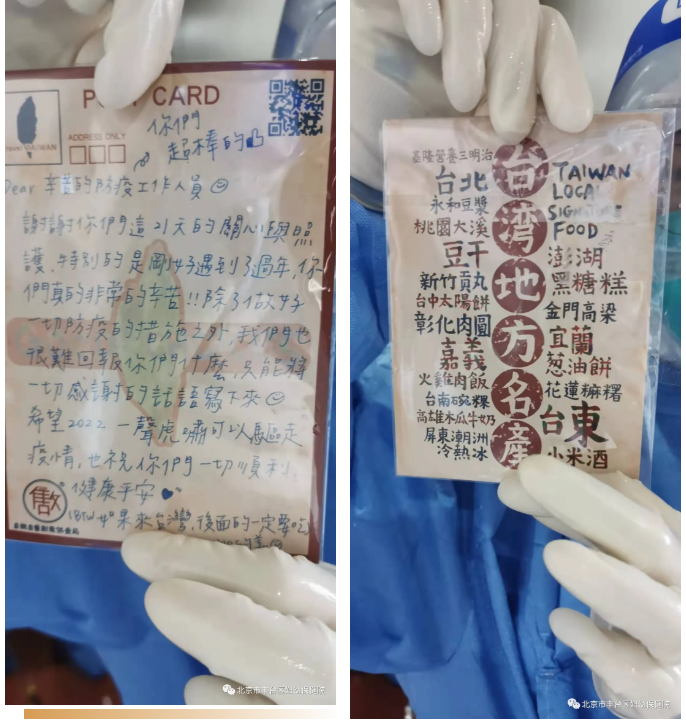 POST CARD
ADDRESS ONLY
TAIWAN
你們
超棒的
Dear 辛苦的防疫工作人員
謝謝你們這21天的關心與照
護,特別的是剛好遇到了過年,你
們真的非常的辛苦!!除了做好
一切防疫的措施之外,我們也
很難回報你們什麼,只能將
一切感謝的話語寫下來
希望2022 一聲虎嘯可以驅走
疫情,也祝你們一切順利,
健康平安
(BTW如果來台灣,後面的一定要吃
北京市丰台区妇幼保健院
台灣地方名產
TAIWAN
LOCAL
SIGNATURE
FOOD
基隆營養三明治
台北
永和豆漿
桃園大溪
豆干
新竹貢丸
台中太陽餅
彰化肉圓
嘉義
火雞肉飯
台南碗粿
高雄木瓜牛奶
屏東潮洲
冷熱冰
澎湖
黑糖糕
金門高梁
宜蘭
蔥油餅
花蓮麻糬
台東
小米酒
北京市丰台区妇幼保健院